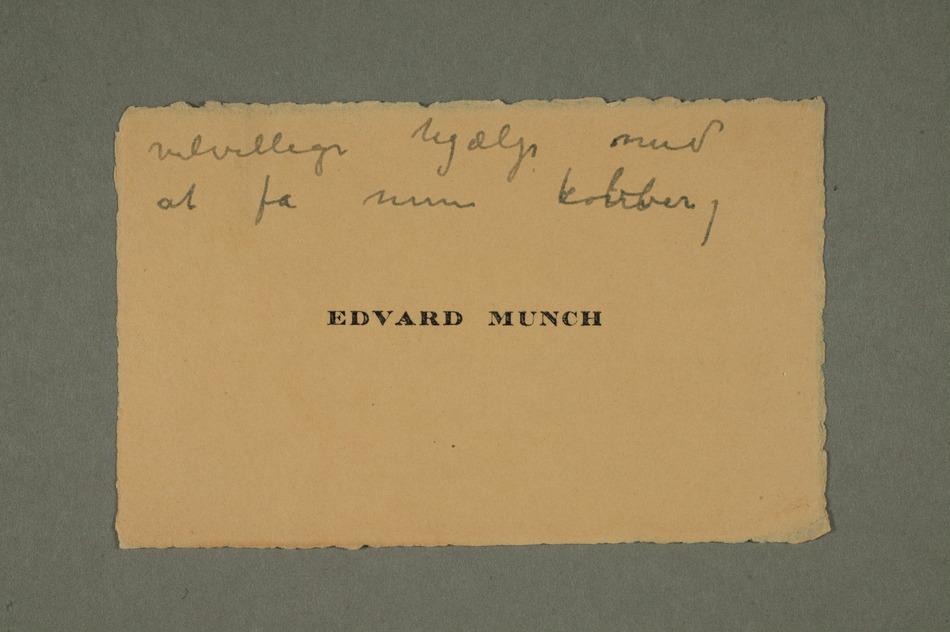 velvillige hjælp med
at fa mine kobber,
EDVARD MUNCH